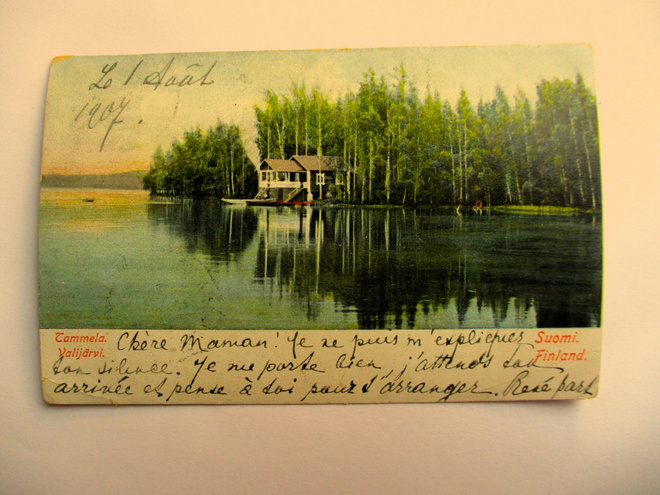 Le 1 Août
1907.
Tammela.
Valijärvi.
Suomi.
Finland.
Chère Maman! Je ne puis m'expliquer
ton silence. Je me porte bien, j'attends ton
arrivée et pense à toi pour s'arranger. part